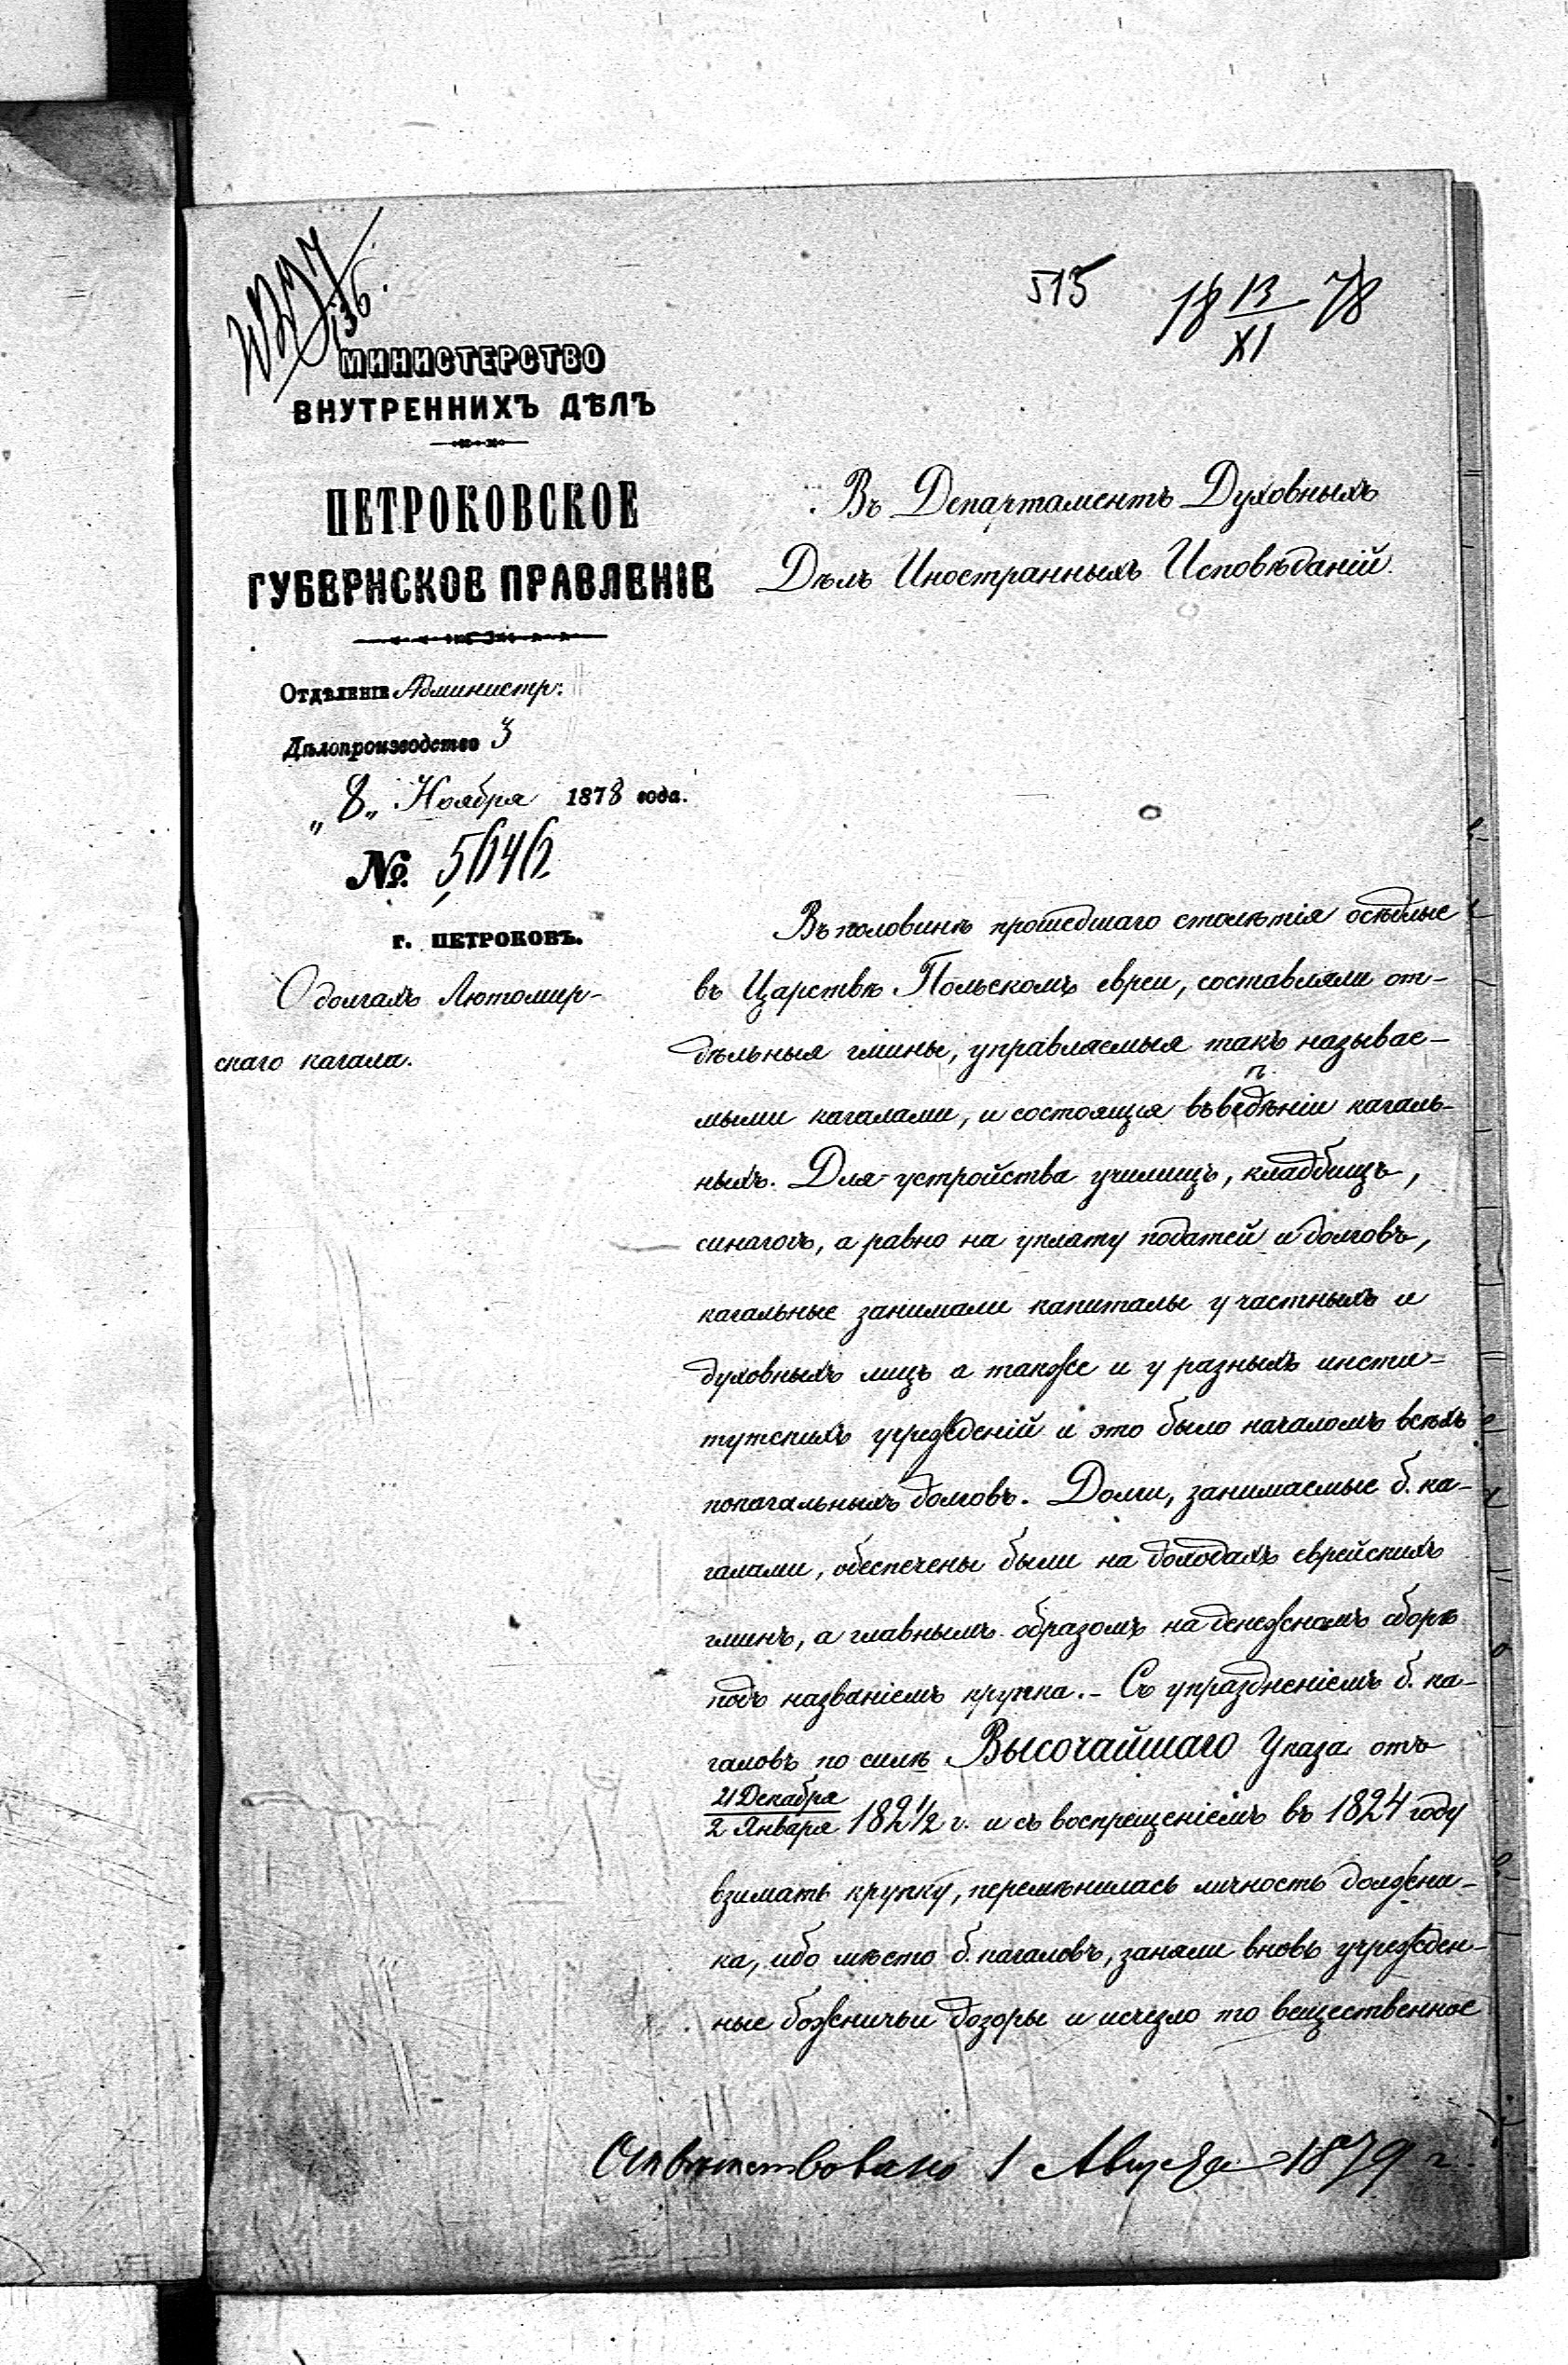 515
18 13/XI 78
МИНИСТЕРСТВО
ВНУТРЕННИХЪ ДѢЛЪ
ПЕТРОКОВСКОЕ
ГУБЕРНСКОЕ ПРАВЛЕНІЕ
Отдѣленіе Администр:
Дѣлопроизводство 3
„8„ Ноября 1878 года.
№. 5646
г. ПЕТРОКОВЪ.
О долгахъ Лютомир-
скаго кагала.
Въ Департаментъ Духовныхъ
Дѣлъ Иностранныхъ Исповѣданій.
Въ половинѣ прошедшаго столѣтія осѣдлые
въ Царствѣ Польскомъ евреи, составляли от-
дѣльныя гмины, управляемыя такъ называе-
мыми кагалами, и состоящія въ вѣдѣніи кагаль-
ныхъ. Для устройства училищъ, кладбищъ,
синагогъ, а равно на уплату податей и долговъ,
кагальные занимали капиталы у частныхъ и
духовныхъ лицъ а также и у разныхъ инсти-
тутскихъ учрежденій и это было началомъ всѣхъ
покагальныхъ долговъ. Долги, занимаемые б. ка-
галами, обеспечены были на доходахъ еврейскихъ
гминъ, а главнымъ образомъ на денежномъ сборѣ
подъ названіемъ крупка. - Съ упраздненіемъ б. ка-
галовъ по силѣ Высочайшаго Указа отъ
21 Декабря/2 Января 182 1/2 г. и съ воспрещеніемъ въ 1824 году
взимать крупку, перемѣнилась личность должни-
ка, ибо мѣсто б. кагаловъ, заняли вновь учрежден-
ные божничьи дозоры и исчезло то вещественное
Отвѣтствовано 1 Августа 1879 г.